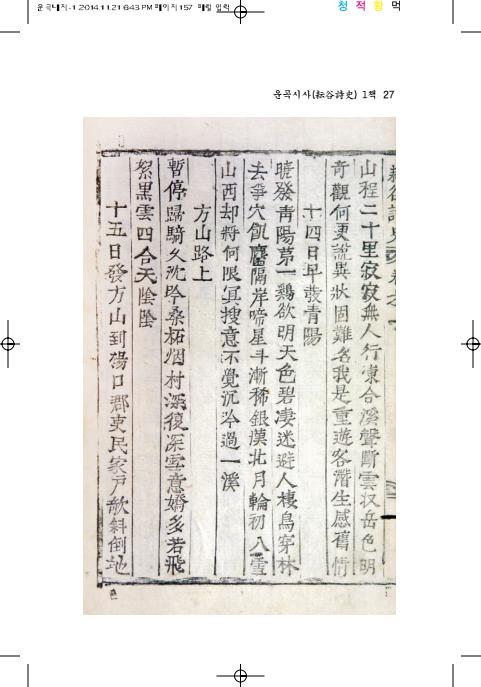 운곡대지-1 2014.11.21 6:43 PM 페이지157 매킨 입력
청 적 황 먹
운곡시사(耘谷詩史) 1책 27
山程二十里寂寂無人行凍合溪聲斷雲收岳色明
奇觀何更說異狀固難名我是重遊客潛生感舊情
十四日早發青陽
曉發青陽第一鷄欲明天色碧凄迷避人棲鳥穿林
去爭穴飢麏隔岸啼星斗漸稀銀漢北月輪初入雪
山西却將何限冥搜意不覺沉吟過一溪
方山路上
暫停歸騎久沉吟桑柘烟村深復深雪意嬌多若飛
絮黑雲四合天陰陰
十五日發方山到楊口郡吏民家戶欹斜倒地